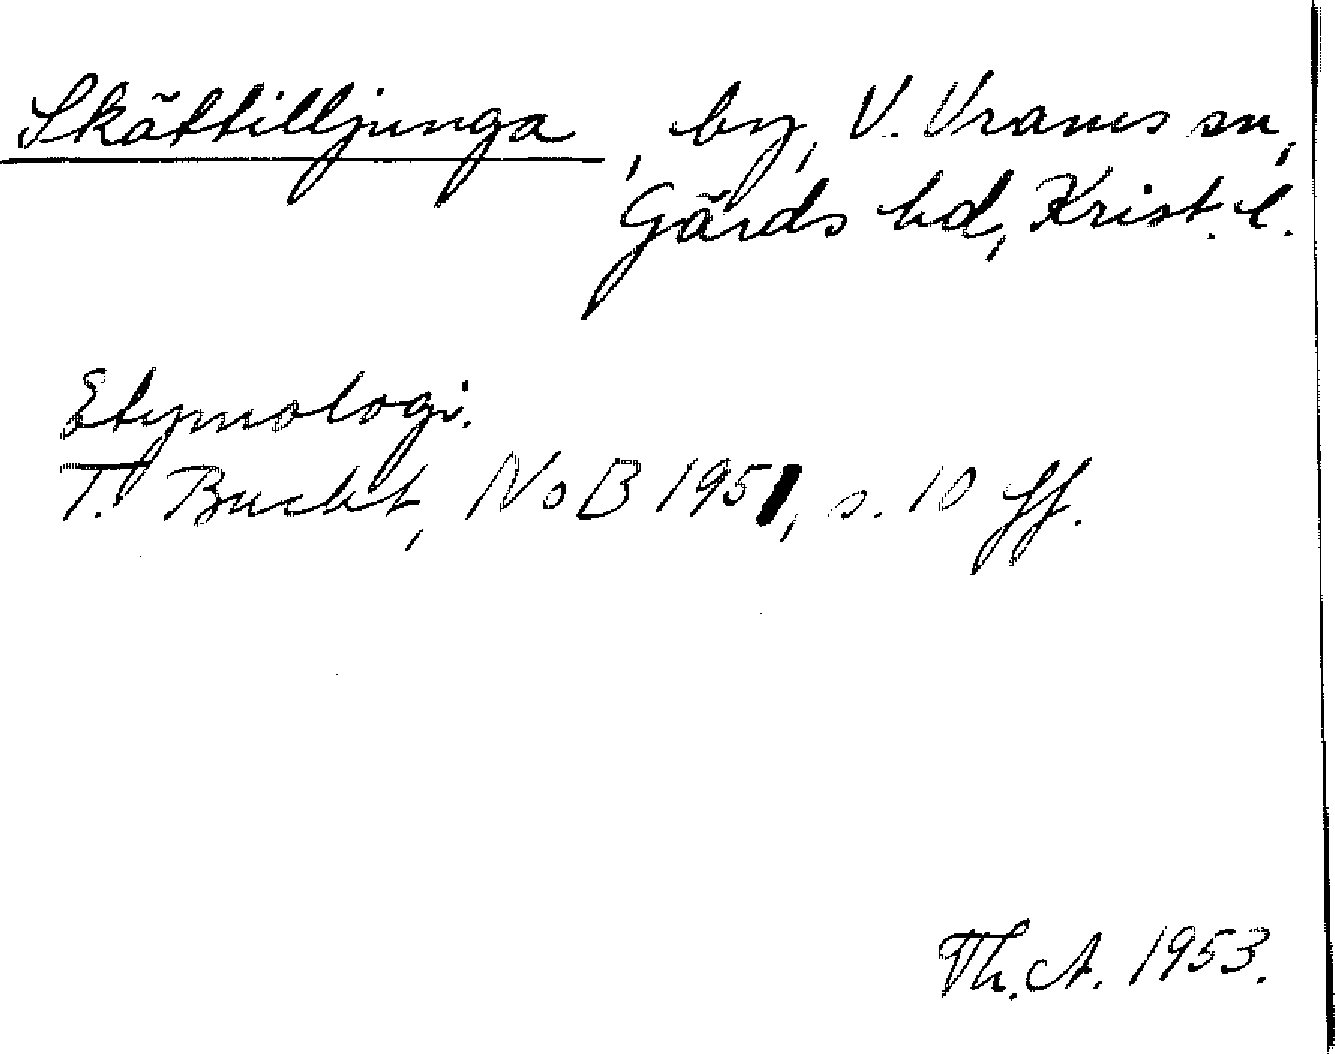 Skättilljunga, by, V. Vrams sn,
Gärds hd, Krist. l.
Etymologi.
T. Bucht, NoB 1951, s. 10 ff.
Th. A. 1953.